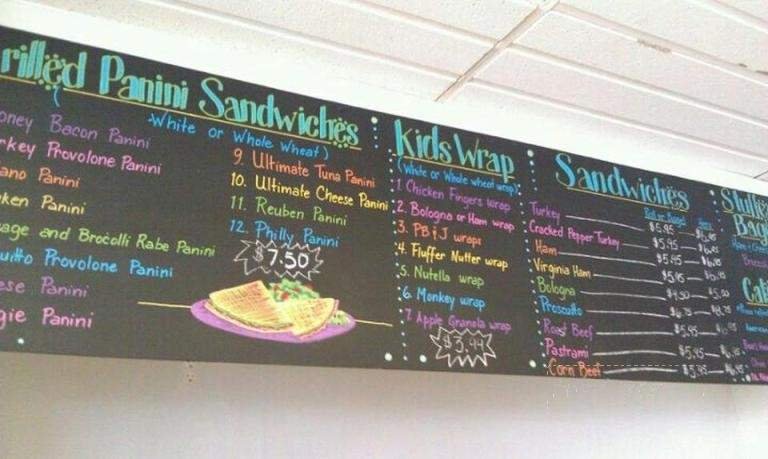 rilled Panini Sandwiches
(White or Whole Wheat)
oney Bacon Panini
rkey Provolone Panini
ano Panini
ken Panini
age and Brocolli Rabe Panini
uitto Provolone Panini
ese Panini
gie Panini
9. Ultimate Tuna Panini
10. Ultimate Cheese Panini
11. Reuben Panini
12. Philly Panini
$7.50
Kids Wrap
(White or Whole wheat wrap)
1. Chicken Fingers wrap
2. Bologna or Ham wrap
3. PB&J wraps
4. Fluffer Nutter wrap
5. Nutella wrap
6. Monkey wrap
7. Apple Granola wrap
$3.99
Sandwiches
Turkey $5.95
Cracked Pepper Turkey $5.95
Ham $5.45
Virginia Ham $5.95
Bologna $4.50
Proscuitto
Roast Beef $5.95
Pastrami $5.95
Corn Beef $5.95